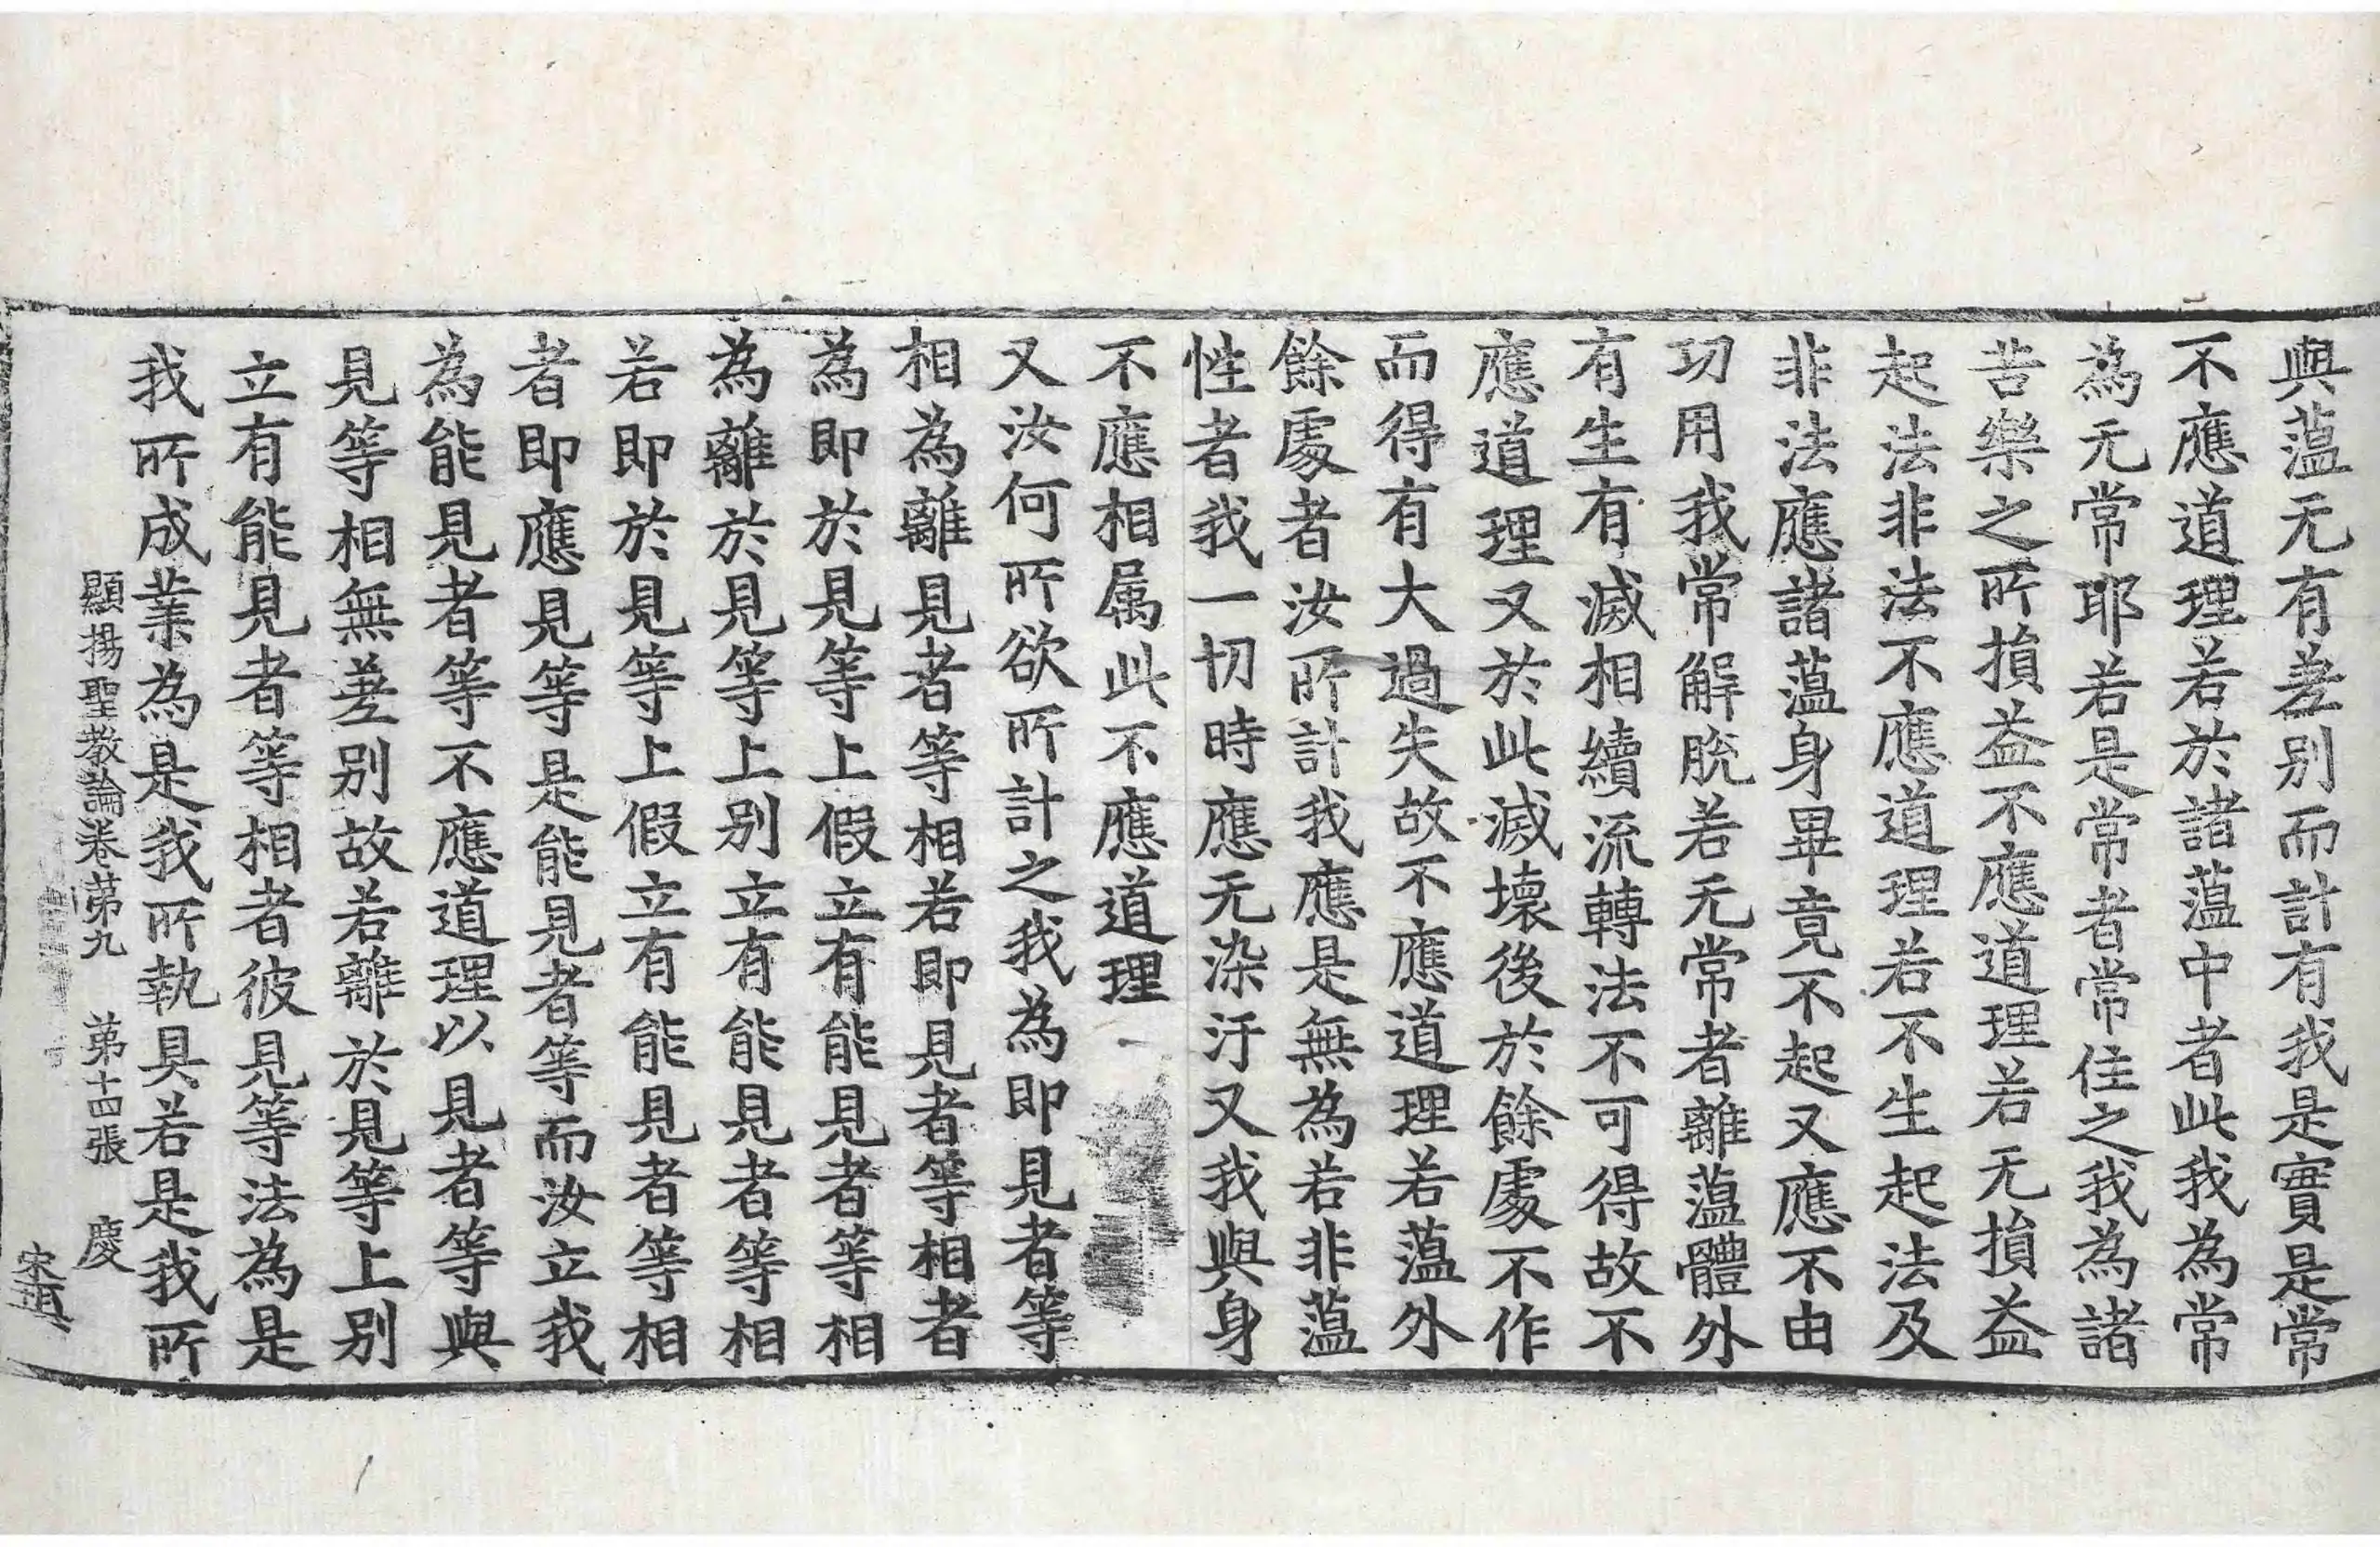 與蘊无有差别而計有我是實是常
不應道理若於諸蘊中者此我為常
為无常耶若是常者常住之我為諸
苦樂之所損益不應道理若无損益
起法非法不應道理若不生起法及
非法應諸蘊身畢竟不起又應不由
功用我常解脫若无常者離蘊體外
有生有滅相續流轉法不可得故不
應道理又於此滅壞後於餘處不作
而得有大過失故不應道理若蘊外
餘處者汝所計我應是無為若非蘊
性者我一切時應无染汙又我與身
不應相属此不應道理
又汝何所欲所計之我為即見者等
相為離見者等相若即見者等相者
為即於見等上假立有能見者等相
為離於見等上别立有能見者等相
若即於見等上假立有能見者等相
者即應見等是能見者等而汝立我
為能見者等不應道理以見者等與
見等相無差别故若離於見等上别
立有能見者等相者彼見等法為是
我所成業為是我所執具若是我所
顯揚聖教論卷苐九 苐十四張 慶